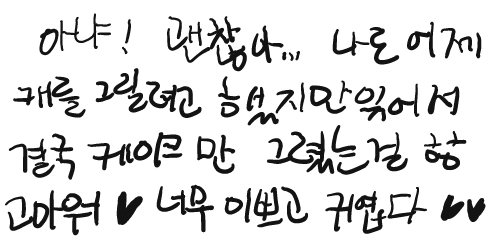 아냐! 괜찮아... 나도 어제
캐를 그릴려고 했지만 있어서
결국 케이크만 그렸는걸 항
고마워 ♥ 너무 이쁘고 귀엽다 ♥♥